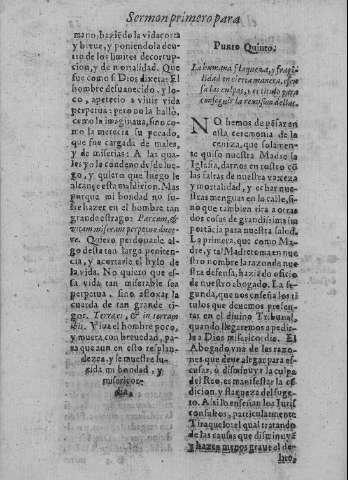 Sermon primero para
mano, haziẽdo la vida corta
y breue, y poniendola den-
tro de los limites de corrup-
cion, y de mortalidad. Que
fue como si Dios dixera: El
hombre desuanecido, y lo-
co, apetecio a viuir vida
perpetua: pero no la hallò,
como la imaginaua, sino co-
mo la merecia su pecado,
que fue cargada de males,
y de miserias: A las qua-
les yo lo condeno, desde lue-
go, y quiero que luego le
alcance esta maldicion. Mas
porque mi bondad no su-
fre hazer en el hombre tan
grande estrago: Parcam, &
vitam miseram perpetuè auce-
re. Quiero perdonarle al-
go desta tan larga peniten-
cia, y acortarle el hylo de
la vida. No quiero que es-
sa vida tan miserable sea
perpetua, sino afloxar la
cuerda de tan grande ri-
gor. Terra es, & in terram
ibis. Viua el hombre poco,
y muera con breuedad, pa-
ra que aun en esto resplan-
dezca, y se muestre lu-
zida mi bondad, y
misericor-
dia.
Punto Quinto.
La humana flaqueza, y fragi-
lidad en cierta manera, escu-
sa las culpas, y es titulo para
conseguir la remision dellas.
NO hemos de pẽsar en
esta ceremonia de la
ceniza, que solamen-
te quiso nuestra Madre la
Iglesia, darnos en rostro cõ
las faltas de nuestra vaxeza
y mortalidad, y echar nue-
stras menguas en la calle, si-
no que tambien tira a otras
dos cosas de grandissima im
portãcia para nuestra salud.
La primera, que como Ma-
dre, y tã Madre toma en nue-
stro nombre la razon de nue-
stra defensa, haziẽdo oficio
de nuestro abogado. La se-
gunda, que nos enseña los ti
tulos que deuemos presen-
tar en el diuino Tribunal,
quando llegaremos a pedir-
le a Dios misericordia. El
Abogado, vna de las razo-
nes que deue alegar para es-
cusar, ò disminuyr la culpa
del Reo, es manifestar la cõ
dicion, y flaqueza del suge-
to. Assi lo enseñan los Juris
consultos, particularmente
Tiraquelo: el qual tratando
de las causas que disminuyẽ
y hazen menos graue el de-
lito,